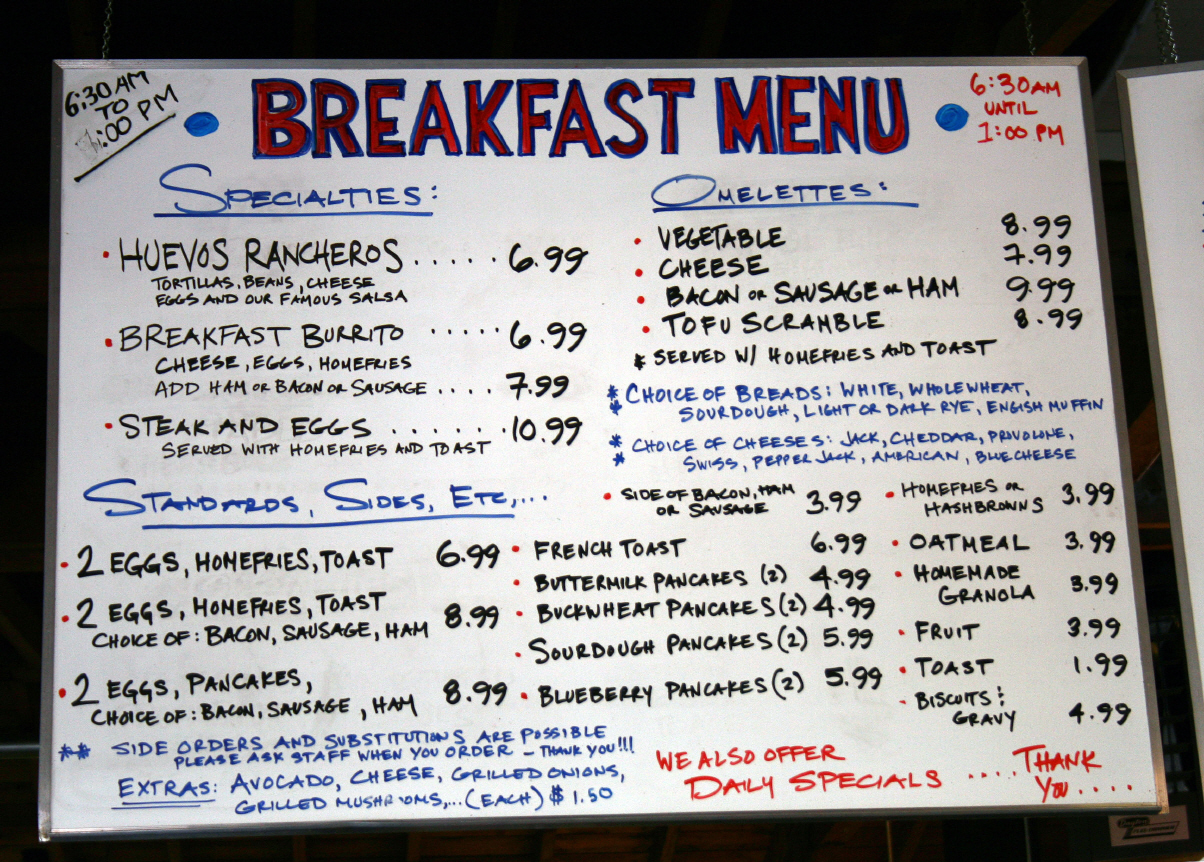 6:30 AM
TO
1:00 PM
BREAKFAST MENU
6:30 AM
UNTIL
1:00 PM
SPECIALTIES:
• HUEVOS RANCHEROS ..... 6.99
TORTILLAS, BEANS, CHEESE
EGGS AND OUR FAMOUS SALSA
• BREAKFAST BURRITO ..... 6.99
CHEESE, EGGS, HOMEFRIES
ADD HAM OR BACON OR SAUSAGE .... 7.99
• STEAK AND EGGS ....... 10.99
SERVED WITH HOMEFRIES AND TOAST
OMELETTES:
• VEGETABLE 8.99
• CHEESE 7.99
• BACON OR SAUSAGE OR HAM 9.99
• TOFU SCRAMBLE 8.99
* SERVED W/ HOMEFRIES AND TOAST
* CHOICE OF BREADS: WHITE, WHOLEWHEAT,
* SOURDOUGH, LIGHT OR DARK RYE, ENGISH MUFFIN
* CHOICE OF CHEESES: JACK, CHEDDAR, PROVOLONE,
* SWISS, PEPPER JACK, AMERICAN, BLUECHEESE
STANDARDS, SIDES, ETC,...
• 2 EGGS, HOMEFRIES, TOAST 6.99
• 2 EGGS, HOMEFRIES, TOAST
CHOICE OF: BACON, SAUSAGE, HAM 8.99
• 2 EGGS, PANCAKES,
CHOICE OF: BACON, SAUSAGE, HAM 8.99
• SIDE OF BACON, HAM
OR SAUSAGE 3.99
• FRENCH TOAST 6.99
• BUTTERMILK PANCAKES (2) 4.99
• BUCKWHEAT PANCAKES (2) 4.99
• SOURDOUGH PANCAKES (2) 5.99
• BLUEBERRY PANCAKES (2) 5.99
• HOMEFRIES OR
HASHBROWNS 3.99
• OATMEAL 3.99
• HOMEMADE
GRANOLA 3.99
• FRUIT 3.99
• TOAST 1.99
• BISCUITS &
GRAVY 4.99
** SIDE ORDERS AND SUBSTITUTIONS ARE POSSIBLE
PLEASE ASK STAFF WHEN YOU ORDER - THANK YOU!!!
EXTRAS: AVOCADO, CHEESE, GRILLED ONIONS,
GRILLED MUSHROOMS,...(EACH) $1.50
WE ALSO OFFER
DAILY SPECIALS .... THANK
YOU....